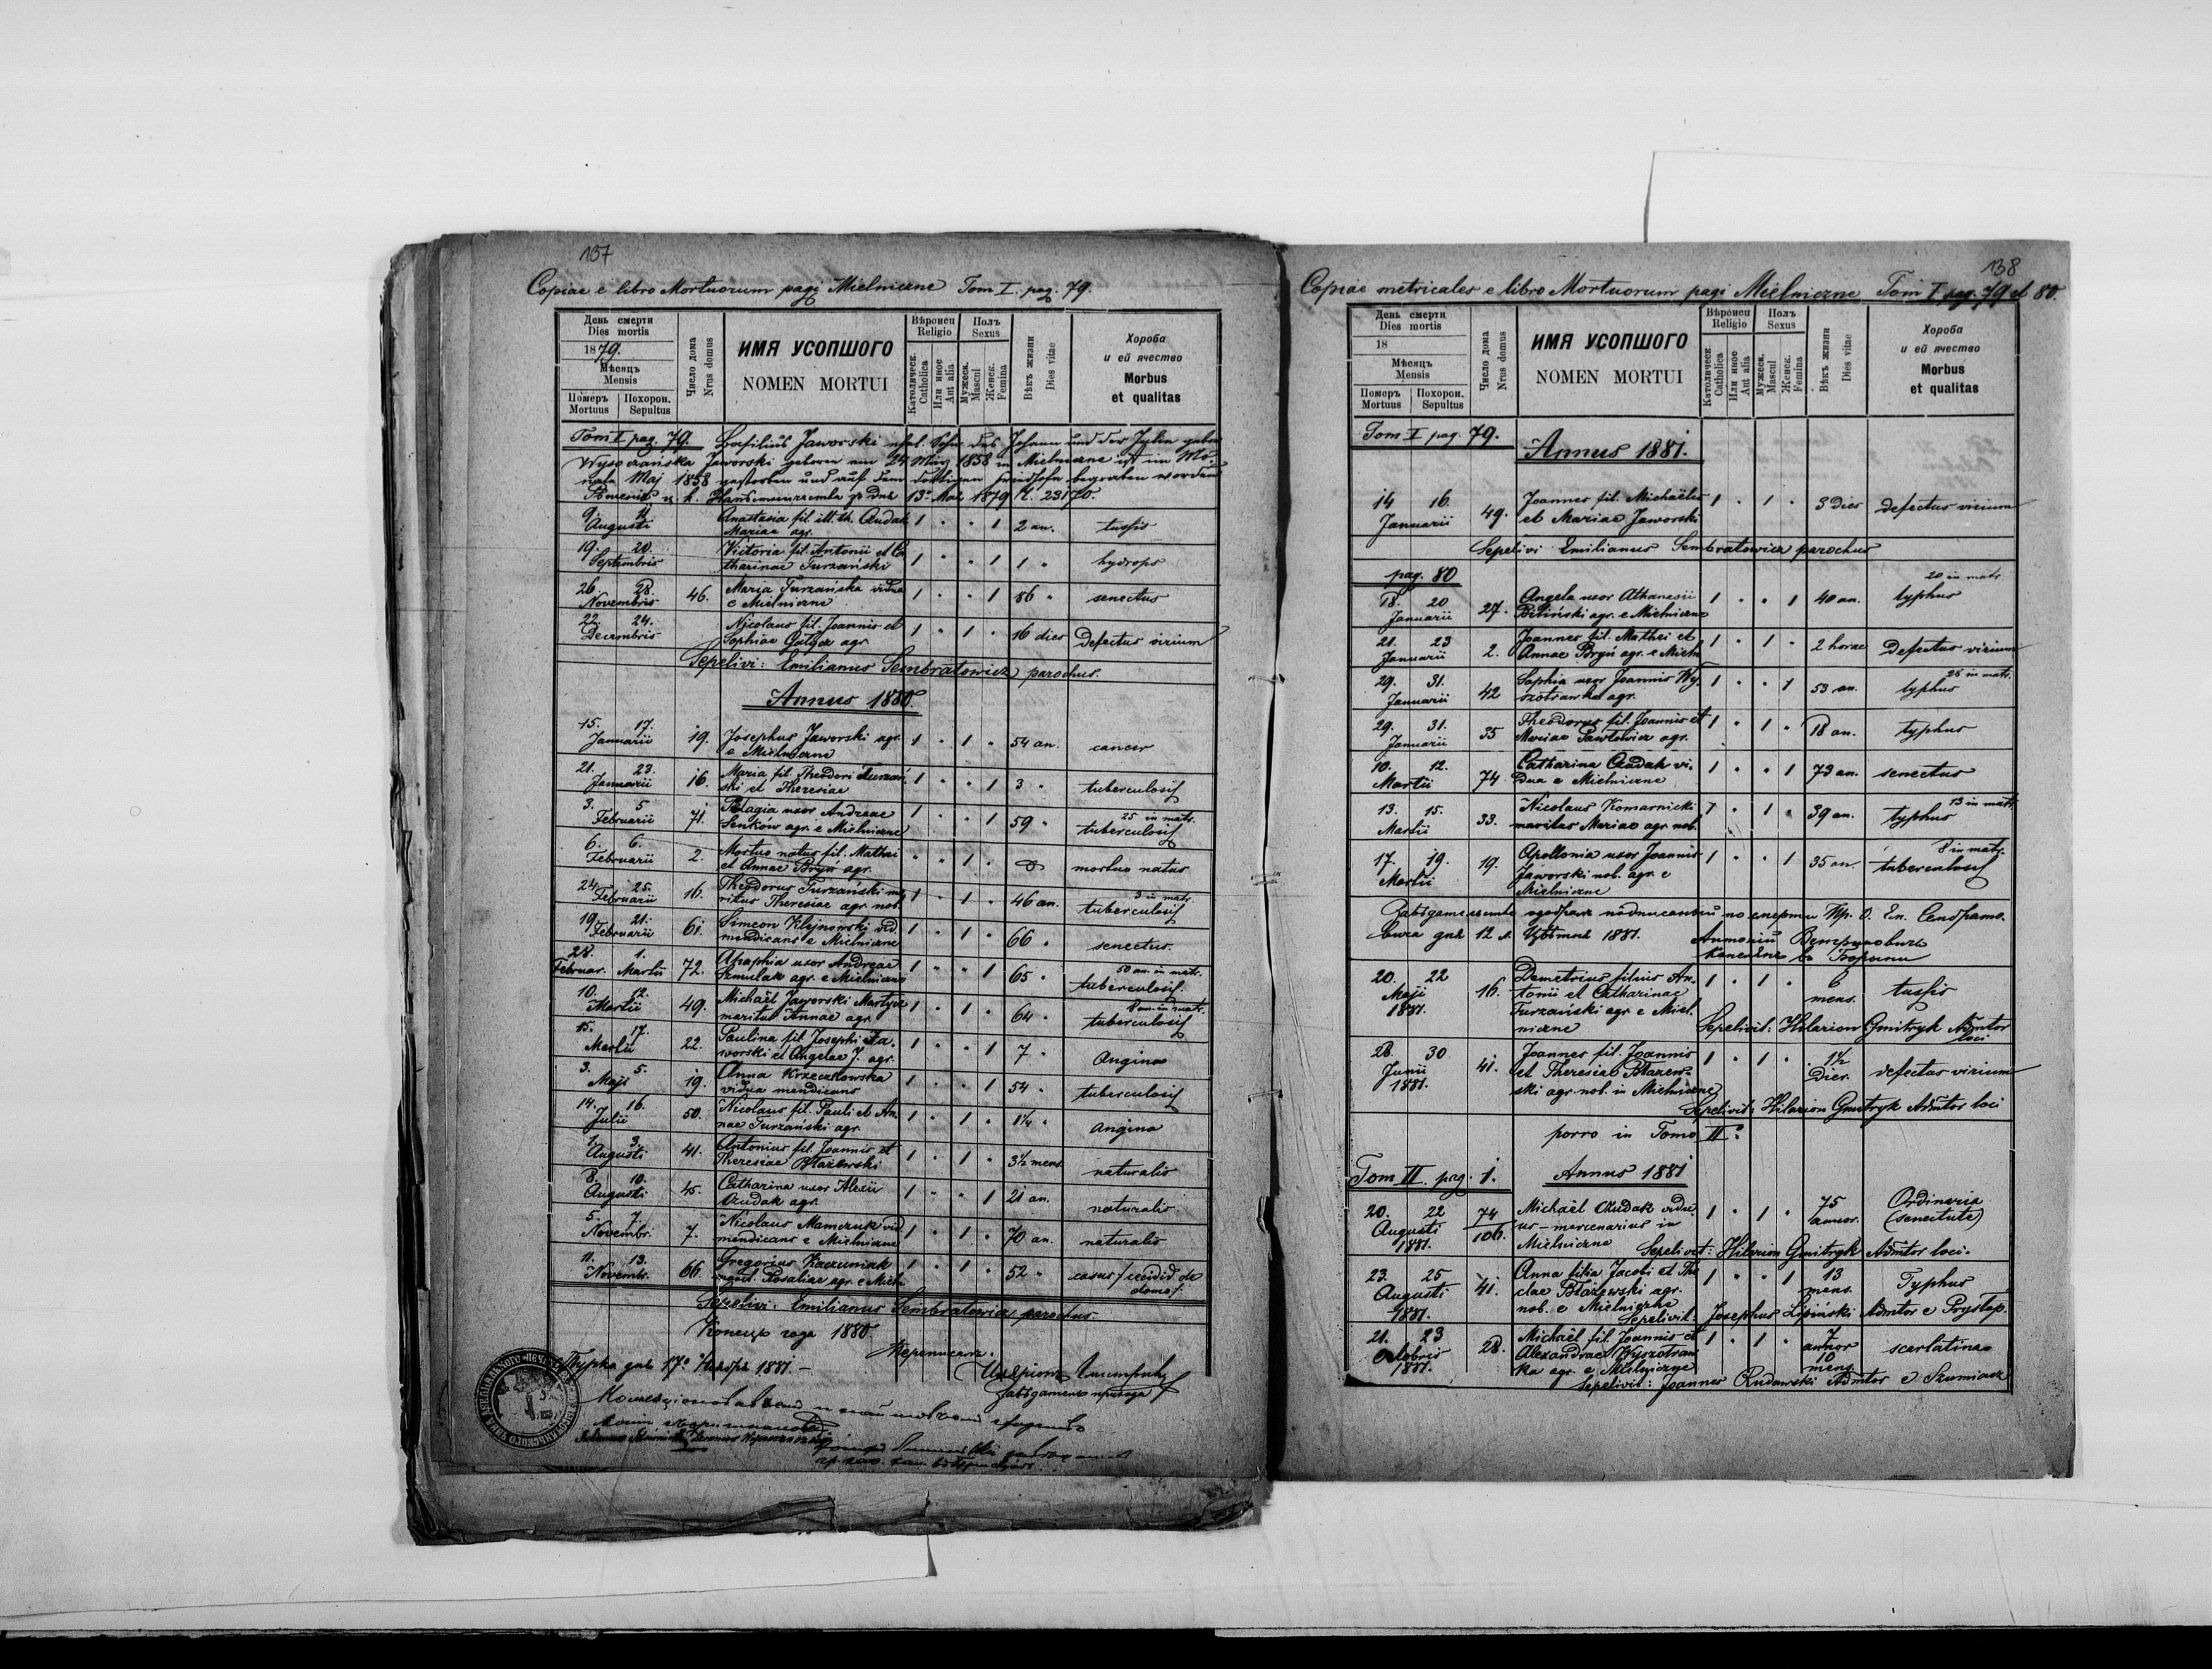 137
Copiae e libro Mortuorum pagi Mielniczne Tom I. pag. 79.
День смерти
Dies mortis
1879.
Мѣсяць
Mensis
Померъ Похорон.
Mortuus Sepultus
Число дома
Nrus domus
ИМЯ УСОПШОГО
NOMEN MORTUI
Вѣроисп
Religio
Католическ.
Catholica
Или иное
Aut alia
Полъ
Sexus
Мужеск.
Mascul
Женск.
Femina
Вѣкъ жизни
Dies vitae
Хороба
и ей ячество
Morbus
et qualitas
Tom I pag. 79. Basilius Jaworski ehel. Sohn des Johann und der Julia
Wysoczańska Jaworski geboren am 24 März 1858 in Mielniczne ist im Mo-
nate Maj 1858 gestorben und auf dem dortigen Friedhofe begraben worden
13. 1879 Ч. 23170.
9. 11 Augusti Anastasia fil. ill. th. Czudak 1 " " 1 2 an. tussis
Mariae agr.
19. 20. Septembris Victoria fil. Antonii et Ca 1 " " 1 1 " hydrops
tharinae Turzański
26. 28. Novembris 46. Maria Turzańska vidua 1 " " 1 86 " senectus
e Mielniczne
22. 24. Decembris Nicolaus fil. Joannis et 1 " 1 " 16 dies Defectus virium
Sophiae agr.
Sepelivi: Emilianus Sembratowicz parochus.
Annus 1880.
15. 17. Januarii 19. Josephus Jaworski agr. 1 " 1 " 54 an. cancer
e Mielniczne
21. 23. Januarii 16. Maria fil. Theodori Turzań- 1 " " 1 3 " tuberculosis
ski et Theresiae
3. 5 Februarii 71. Pelagia uxor Andreae 1 " " 1 59 " 25 in matr. tuberculosis
Senków agr. e Mielniczne
6. 6. Februarii 2. Mortuo natus fil. Mathei " " 1 " mortuo natus
et Annae Bryń agr.
24. 25. Februarii 16. Theodorus Turzański ma 1 " 1 " 46 an. 3 in matr. tuberculosis
ritus Theresiae agr. nob.
19 21. Februarii 61. Simeon Klejnowski vid. 1 " 1 " 66 " senectus.
mendicans e Mielniczne
28. 1. Februar. Martii 72. Ahaphia uxor Andreae 1 " " 1 65 " 50 an. in matr. tuberculosis.
Szmulak agr. e Mielniczne
10. 12. Martii 49. Michaël Jaworski Martycz 1 " 1 " 64 " 8 an. in matr. tuberculosis
maritus Annae agr.
15. 17. Martii 22. Paulina fil. Josephi Ja- 1 " " 1 7 " Angina
worski et Angelae J. agr.
3. 5. Maji 19. Anna Krzeczkowska 1 " " 1 54 " tuberculosis
vidua mendicans
14. 16. Julii 50. Nicolaus fil. Pauli et An- 1 " 1 " 1¼ " angina
nae Turzański agr.
1. 3. Augusti 41. Antonius fil. Joannis et 1 " 1 " 3½ mens. naturalis
Theresiae Błażewski
8. 10. Augusti 45. Catharina uxor Alexii 1 " " 1 21 an. naturalis
Czudak agr.
5. 7. Novembr. 7. Nicolaus Mamczuk vid. 1 " 1 " 70 an. naturalis
mendicans e Mielniczne
11. 13. Novembr. 66. Gregorius Kaczmniak 1 " 1 " 52 " casus / cecidid de
marit. Rosaliae agr. e Mieln. domo /.
Sepelivi: Emilianus Sembratowicz parochus.
Конецъ года 1880.
Турка днѧ 17. 1881. –
Иляріонъ Гмитрикъ
138
Copiae metricales e libro Mortuorum pagi Mielniczne Tom I pag. 79 et 80.
День смерти
Dies mortis
18
Мѣсяць
Mensis
Померъ Похорон.
Mortuus Sepultus
Число дома
Nrus domus
ИМЯ УСОПШОГО
NOMEN MORTUI
Вѣроисп
Religio
Католическ.
Catholica
Или иное
Aut alia
Полъ
Sexus
Мужеск.
Mascul
Женск.
Femina
Вѣкъ жизни
Dies vitae
Хороба
и ей ячество
Morbus
et qualitas
Tom I pag. 79.
Annus 1881.
14 16. Januarii 49. Joannes fil. Michaëlis 1 " 1 " 3 Dies defectus virium
et Mariae Jaworski
Sepelivi Emilianus Sembratowicz parochus
pag. 80
18. 20 Januarii 27. Angela uxor Athanasii 1 " " 1 40 an. 20 in matr. typhus
Biliński agr. e Mielniczne
21. 23 Januarii 2. Joannes fil. Mathei et 1 " 1 " 2 horae Defectus virium
Annae Bryń agr. e Mieln
29. 31. Januarii 42 Sophia uxor Joannis Wy- 1 " " 1 53 an. 28 in matr. typhus
szotrawka agr.
29. 31. Januarii 35 Theodorus fil. Joannis et 1 " 1 " 18 an. typhus
Mariae Pawłowicz agr.
10. 12. Martii 74 Catharina Czudak vi- 1 " " 1 73 an. senectus
dua e Mielniczne
13. 15. Martii 33. Nicolaus Komarnicki 1 " 1 " 39 an. 13 in matr. typhus
maritus Mariae agr. nob.
17. 19. Martii 19. Apollonia uxor Joannis 1 " " 1 35 an 8 in matr. tuberculosis
Jaworski nob. agr. e
Mielniczne
подписаный по смерти О. Ем. Сембрато-
вича днѧ 12 1881.
Антоній Ветруховичъ
20. 22 Maji 1881. 16. Demetrius filius An- 1 " 1 " 6 mens. tussis
tonii et Catharinae
Turzański agr. e Miel-
niczne Sepelivit: Hilarion Gmitryk Admtor
loci
28. 30 Junii 1881. 41. Joannes fil. Joannis 1 " 1 " 1½ Dies. defectus virium
et Theresiae Błażew-
ski agr. nob. in Mielniczne
Sepelivit: Hilarion Gmitryk Admtor loci
porro in Tomo II.
Tom II. pag. 1. Annus 1881
20. 22 Augusti 1881. 74 106. Michaël Czudak vidu 1 " 1 " 75 annor. Ordinaria
us – mercenarius in (senectute)
Mielniczne Sepelivit: Hilarion Gmitryk Admtor loci.
23. 25 Augusti 1881. 41. Anna filia Jacobi et The 1 " " 1 13 mens. Typhus
clae Błażewski agr.
nob. e Mielniczne
Sepelivit: Josephus Lipiński Admtor e Prystap.
21. 23 Octobris 1881. 28. Michaël fil. Joannis et 1 " 1 " 7 annor 10 mens. scarlatina
Alexandrae Wyszotraw
ka agr. e Mielniczne
Sepelivit: Joannes Rudawski Admtor e Szumiacz